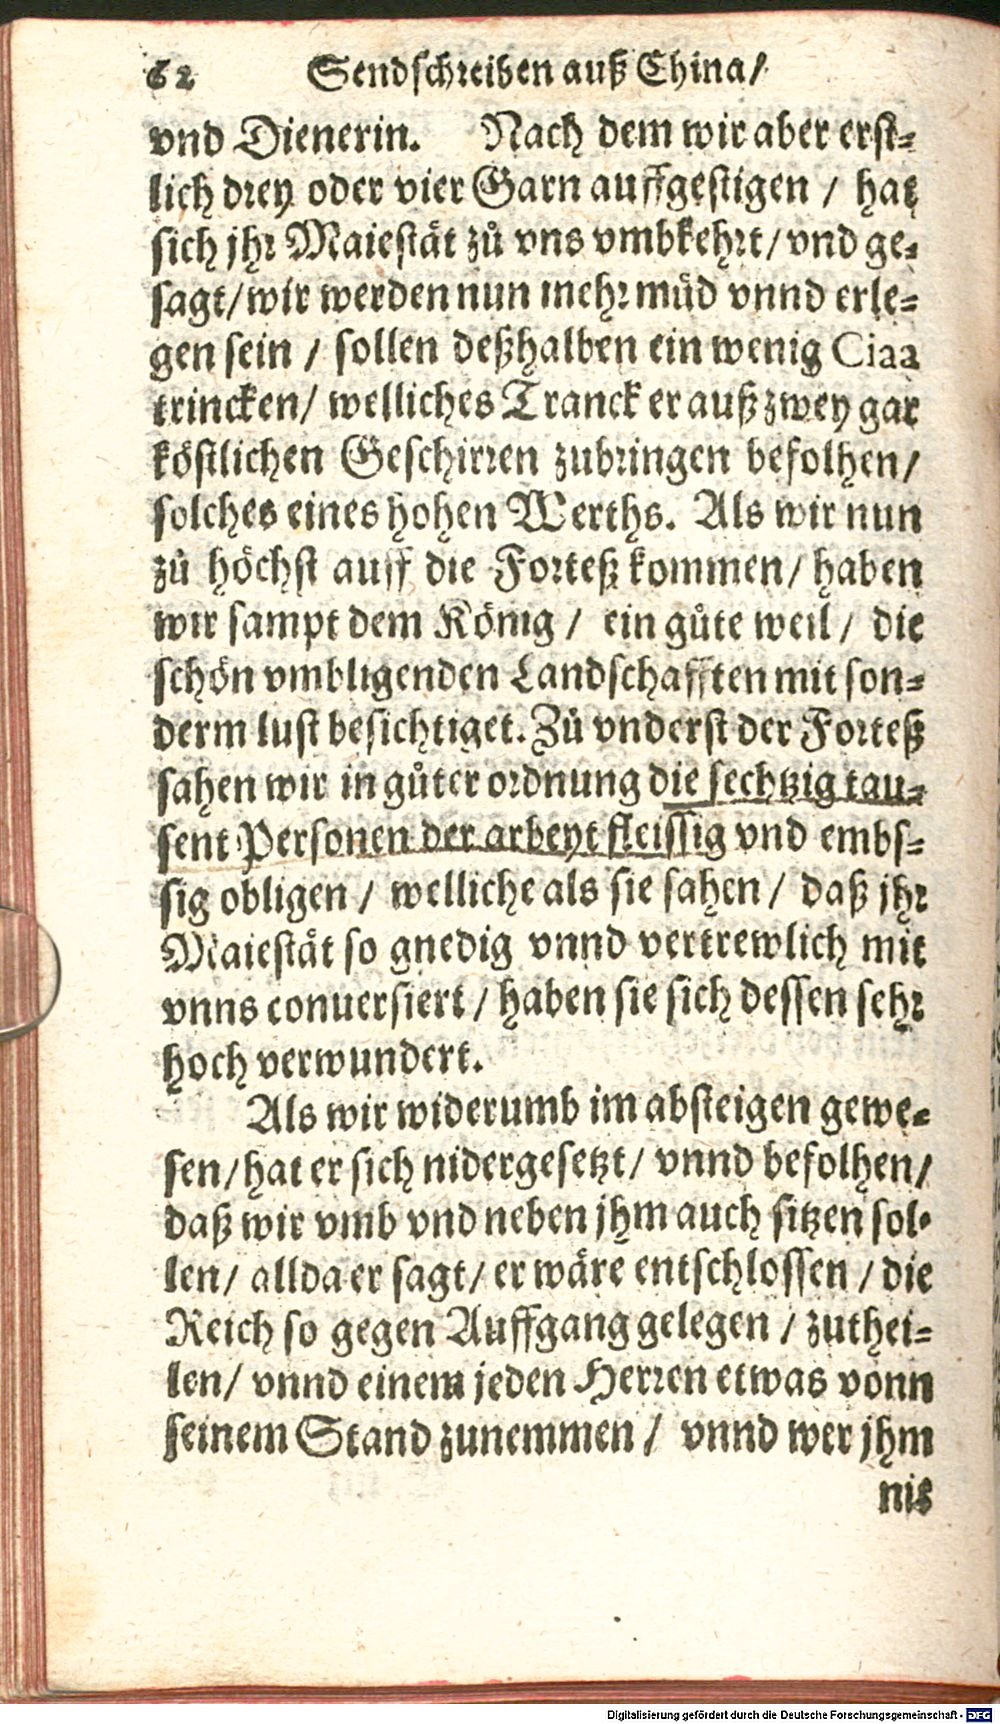 62 Sendschreiben auß China/
vnd Dienerin. Nach dem wir aber erst-
lich drey oder vier Garn auffgestigen / hat
sich jhr Maiestät zů vns vmbkehrt/ vnd ge-
sagt/ wir werden nun mehr müd vnnd erle-
gen sein / sollen deßhalben ein wenig Ciaa
trincken/ welliches Tranck er auß zwey gar
köstlichen Geschirren zubringen befolhen/
solches eines hohen Werths. Als wir nun
zů höchst auff die Forteß kommen/ haben
wir sampt dem König / ein gůte weil / die
schön vmbligenden Landschafften mit son-
derm lust besichtiget. Zů vnderst der Forteß
sahen wir in gůter ordnung die sechtzig tau-
sent Personen der arbeyt fleissig vnd embs-
sig obligen / welliche als sie sahen / daß jhr
Maiestät so gnedig vnnd vertrewlich mit
vnns conuersiert / haben sie sich dessen sehr
hoch verwundert.
Als wir widerumb im absteigen gewe-
sen/ hat er sich nidergesetzt/ vnnd befolhen/
daß wir vmb vnd neben jhm auch sitzen sol-
len/ allda er sagt/ er wäre entschlossen / die
Reich so gegen Auffgang gelegen / zuthei-
len/ vnnd einem jeden Herren etwas vonn
seinem Stand zunemmen / vnnd wer jhm
nis
Digitalisierung gefördert durch die Deutsche Forschungsgemeinschaft - DFG